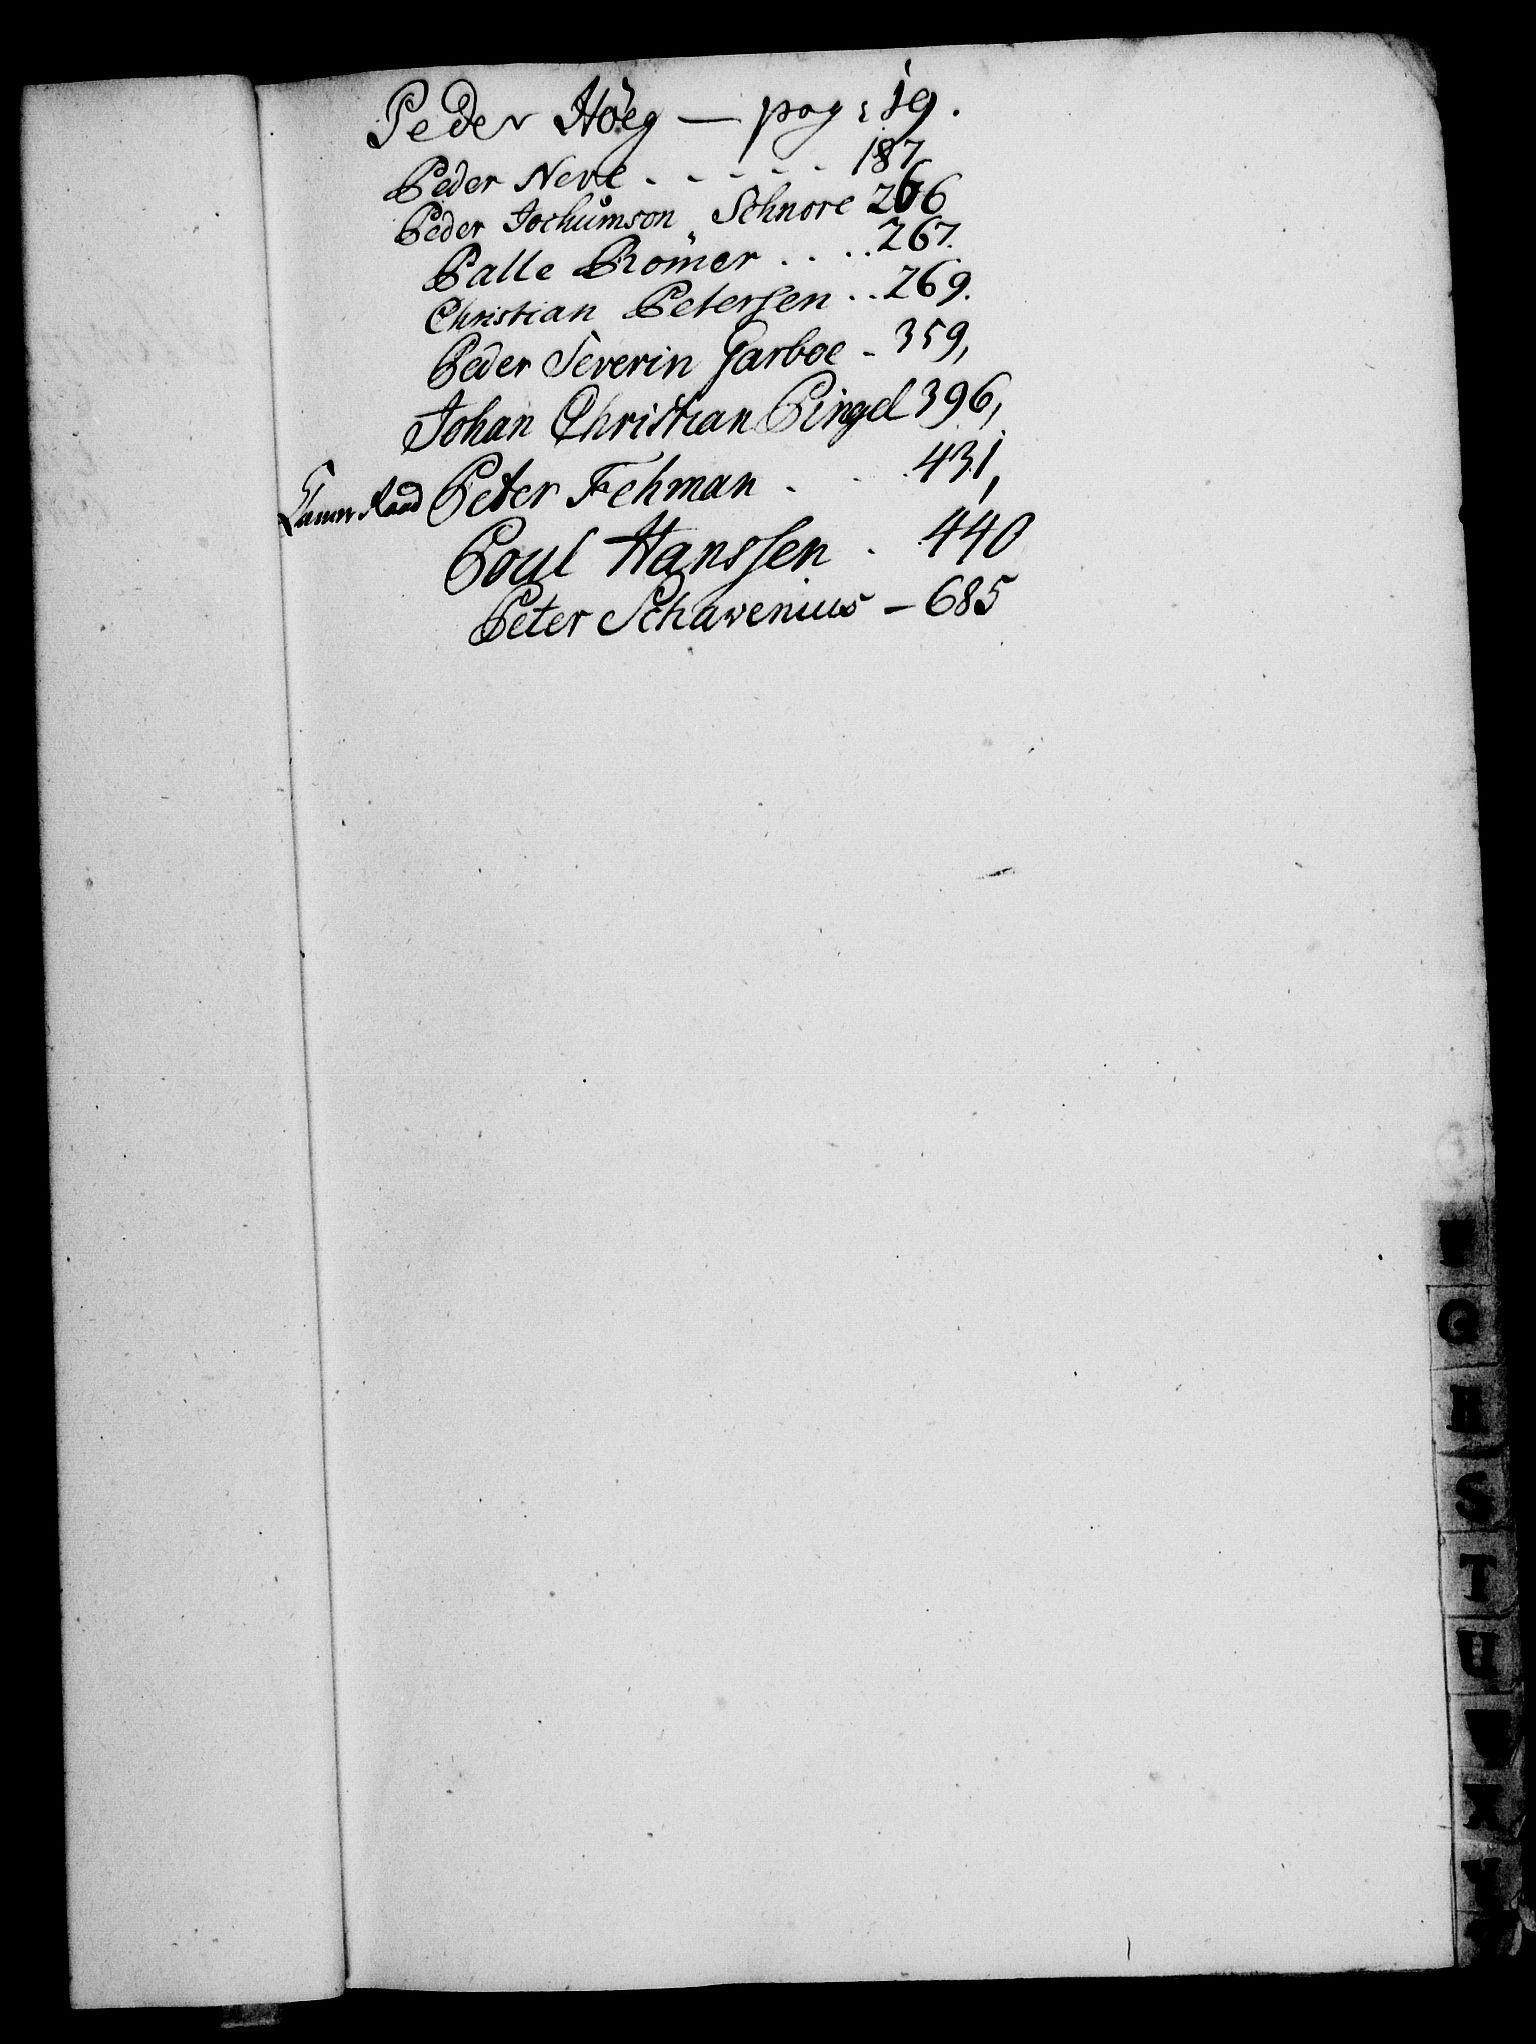 Peder Höeg — pag: 19.
Peder Neve . - - - . - 187
Peder Jochumson Schnore 266
Palle Römer . . . . 267.
Christian Petersen . . 269.
Peder Severin Garboe - 359,
Johan Christian Pingel 396,
Peter Fehman . . . 431,
Poul Hanssen . 440
Peter Schavenius — 685
P
Q
R
S
T
U
W
X
Y
Z